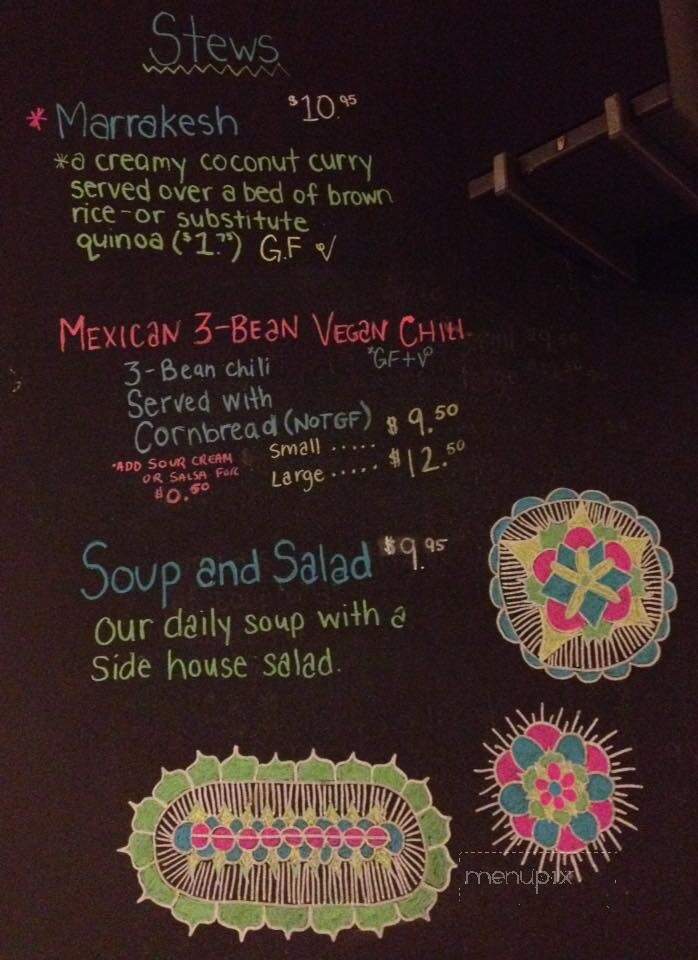 Stews
* Marrakesh $10.95
*a creamy coconut curry
served over a bed of brown
rice - or substitute
quinoa ($1.75) G.F V
MEXICAN 3-BEAN VEGAN CHILI
*GF+V
3-Bean chili
Served with
Cornbread (NOT GF) $9.50
Small .....
Large ..... $12.50
*ADD SOUR CREAM
OR SALSA FOR
$0.50
Soup and Salad $9.95
Our daily soup with a
Side house salad.
menupix